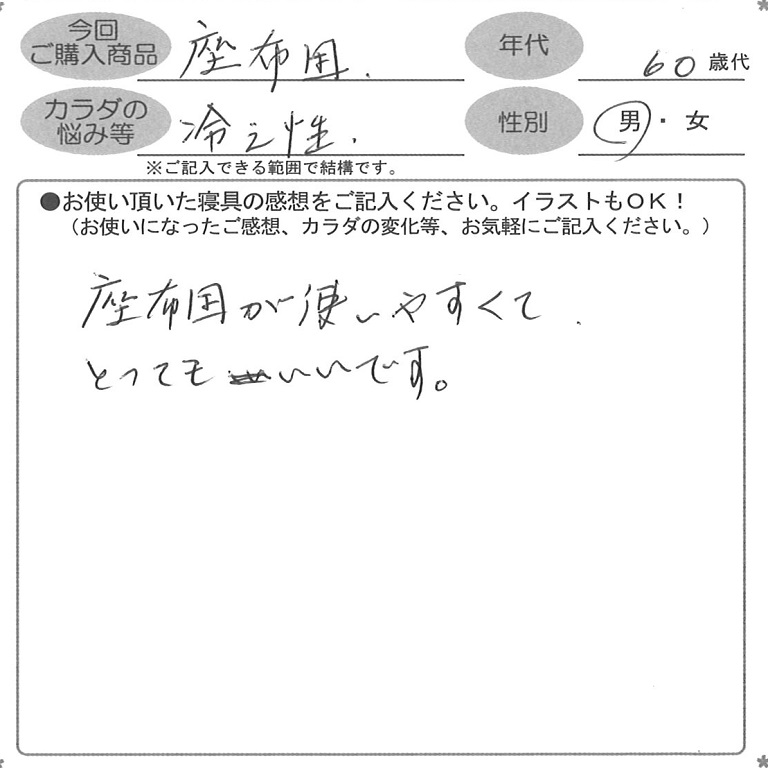 今回
ご購入商品
座布団.
年代
60歳代
カラダの
悩み等
冷え性.
性別
男・女
※ご記入できる範囲で結構です。
●お使い頂いた寝具の感想をご記入ください。イラストもOK！
（お使いになったご感想、カラダの変化等、お気軽にご記入ください。）
座布団が使いやすくて.
とってもいいです。